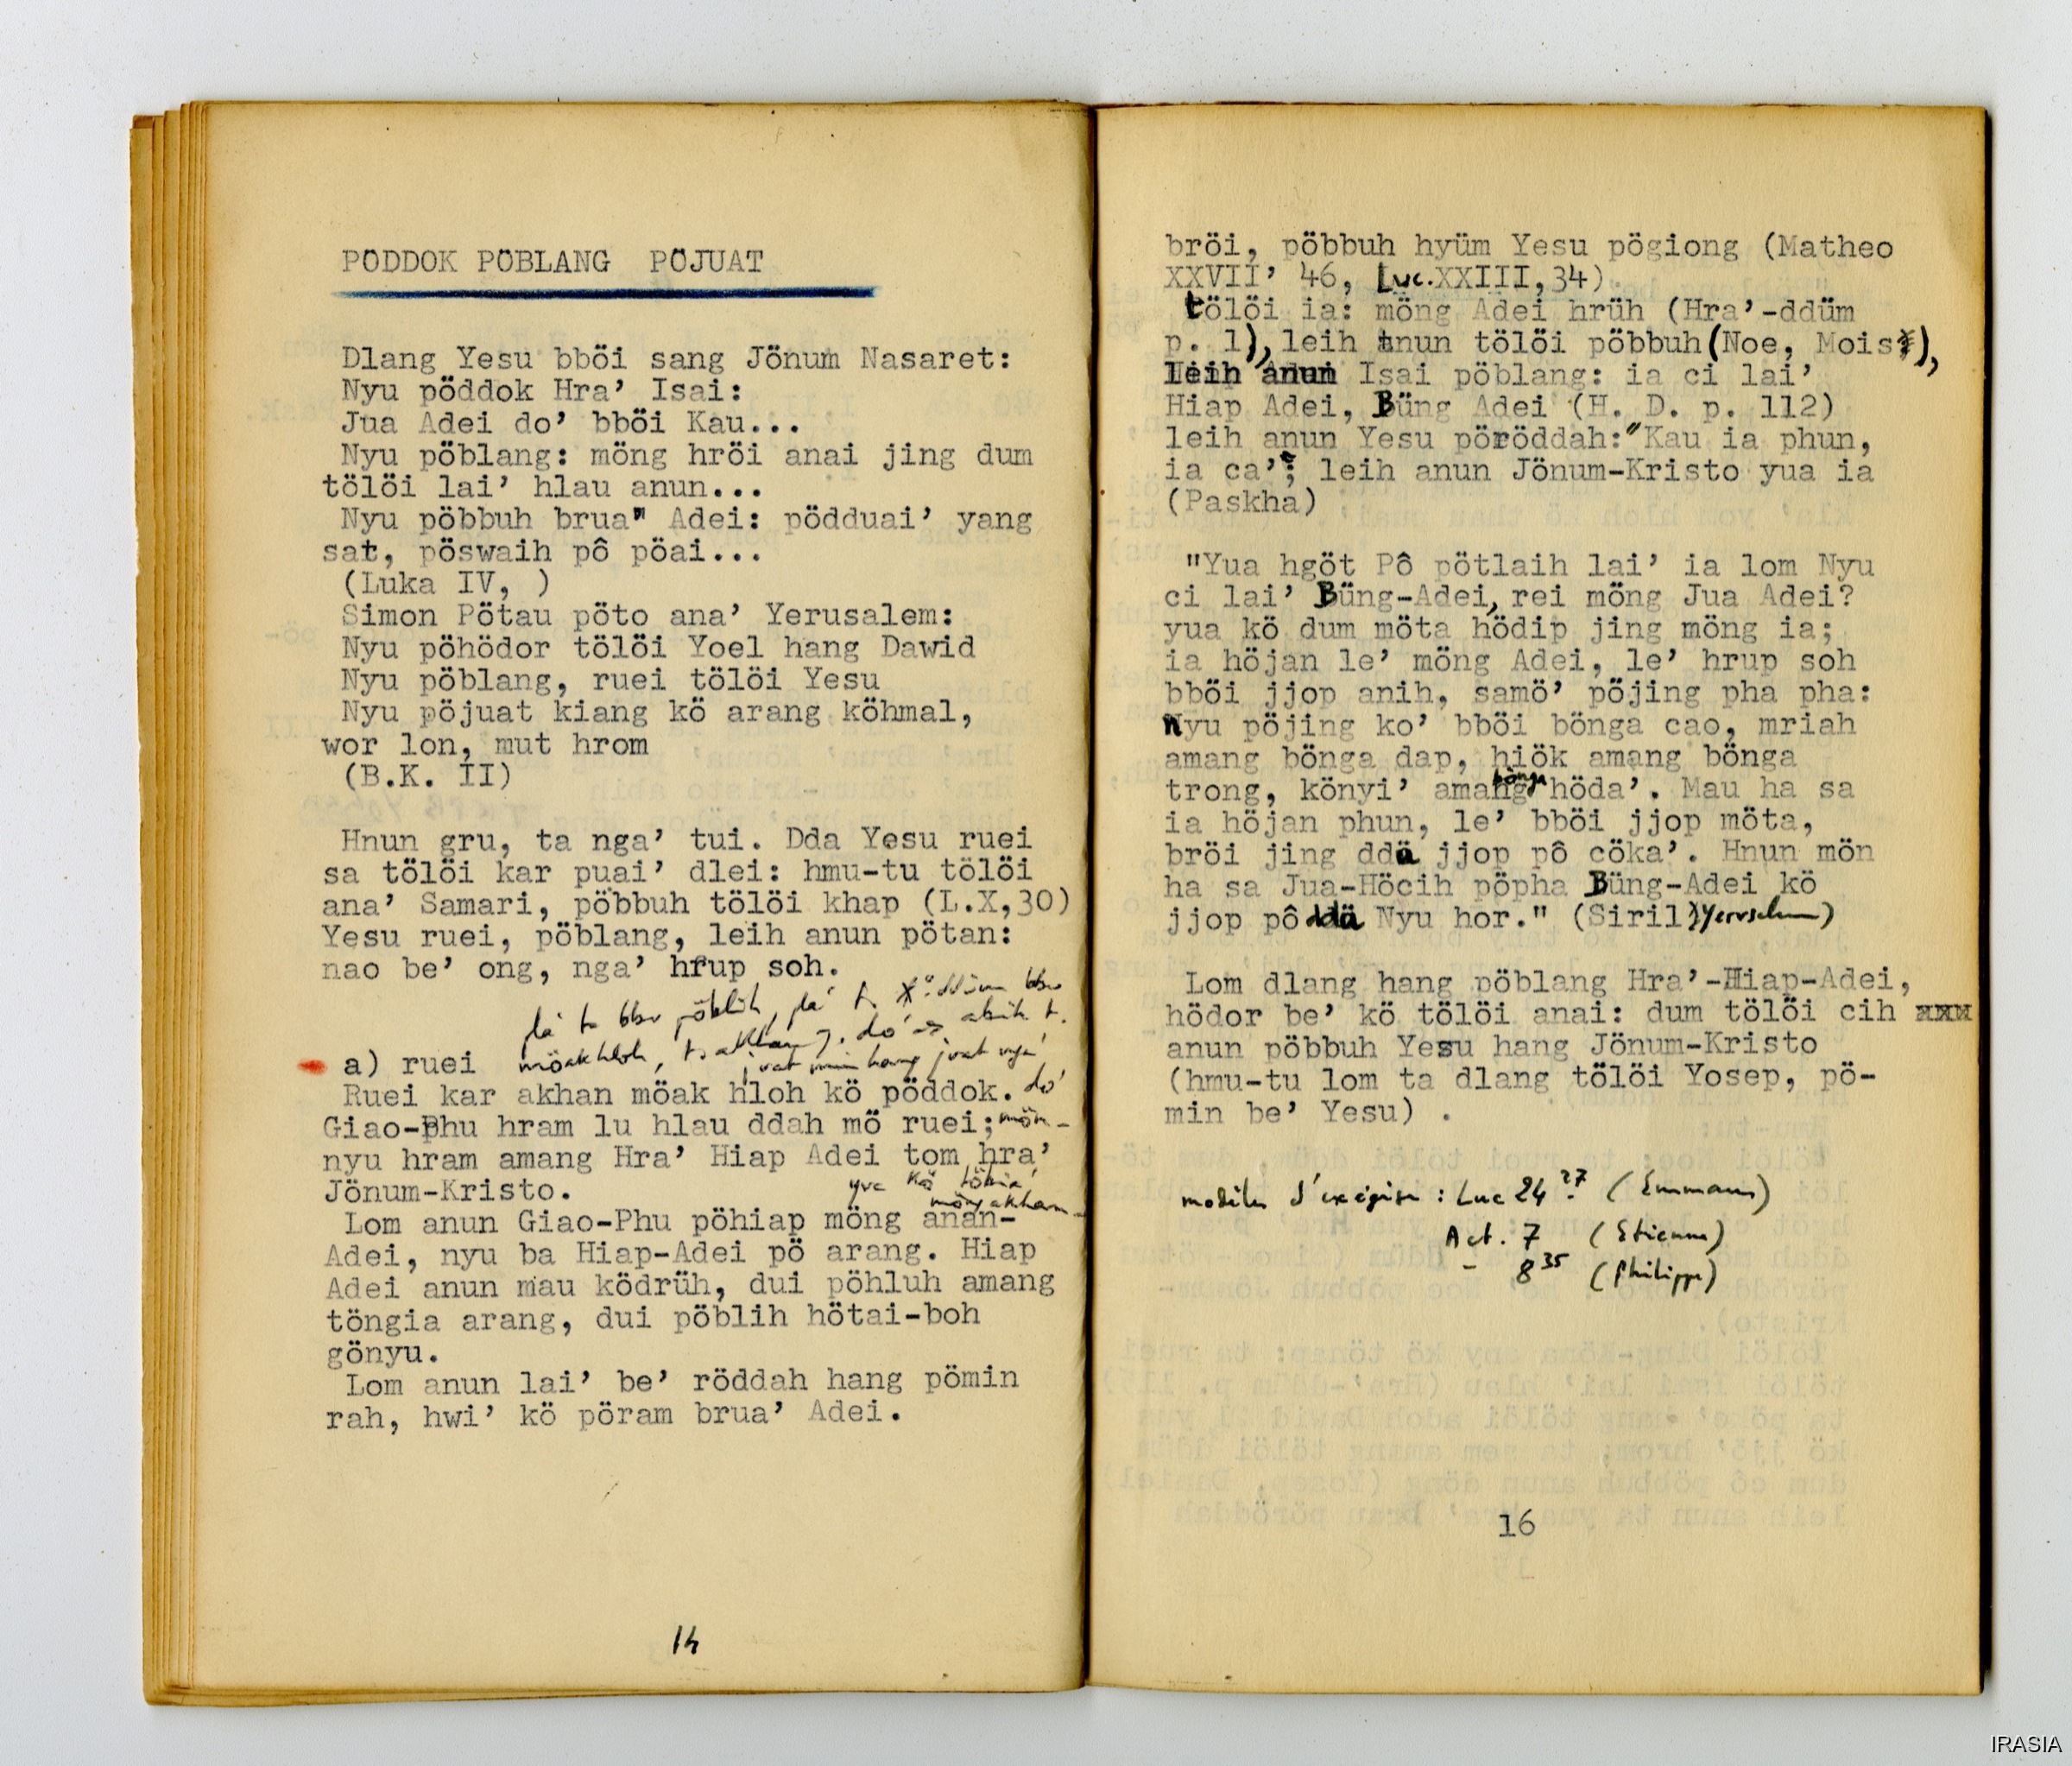 PÖDDOK PÖBLANG PÖJUAT
Dlang Yesu bböi sang Jönum Nasaret:
Nyu pöddok Hra’ Isai:
Jua Adei do’ bböi Kau...
Nyu pöblang: möng hröi anai jing dum
tölöi lai’ hlau anun...
Nyu pöbbuh brua" Adei: pödduai’ yang
sat, pöswaih pô pöai...
(Luka IV, )
Simon Pötau pöto ana’ Yerusalem:
Nyu pöhödor tölöi Yoel hang Dawid
Nyu pöblang, ruei tölöi Yesu
Nyu pöjuat kiang kö arang köhmal,
wor lon, mut hrom
(B.K. II)
Hnun gru, ta nga’ tui. Dda Yesu ruei
sa tölöi kar puai’ dlei: hmu-tu tölöi
ana’ Samari, pöbbuh tölöi khap (L.X,30)
Yesu ruei, pöblang, leih anun pötan:
nao be’ ong, nga’ hrup soh.
a) ruei
Ruei kar akhan möak hloh kö pöddok. do’
Giao-Phu hram lu hlau ddah mö ruei; mön-
nyu hram amang Hra’ Hiap Adei tom hra’
Jönum-Kristo.
yua kö
Lom anun Giao-Phu pöhiap möng anan-
Adei, nyu ba Hiap-Adei pö arang. Hiap
Adei anun mau ködrüh, dui pöhluh amang
töngia arang, dui pöblih hötai-boh
gönyu.
Lom anun lai’ be’ röddah hang pömin
rah, hwi’ kö pöram brua’ Adei.
14
bröi, pöbbuh hyüm Yesu pögiong (Matheo
XXVII’ 46, Luc.XXIII,34)
tölöi ia: möng Adei hrüh (Hra’-ddüm
p. 1), leih anun tölöi pöbbuh (Noe, Mois),
leih anun Isai pöblang: ia ci lai’
Hiap Adei, Büng Adei (H. D. p. 112)
leih anun Yesu pöröddah:"Kau ia phun,
ia ca’"; leih anun Jönum-Kristo yua ia
(Paskha)
"Yua hgöt Pô pötlaih lai’ ia lom Nyu
ci lai’ Büng-Adei, rei möng Jua Adei?
yua kö dum möta hödip jing möng ia;
ia höjan le’ möng Adei, le’ hrup soh
bböi jjop anih, samö’ pöjing pha pha:
Nyu pöjing ko’ bböi bönga cao, mriah
amang bönga dap, hiök amang bönga
trong, könyi’ amang bönga höda’. Mau ha sa
ia höjan phun, le’ bböi jjop möta,
bröi jing ddä jjop pô cöka’. Hnun mön
ha sa Jua-Höcih pöpha Büng-Adei kö
jjop pô ddä Nyu hor." (Siril Yerusalem)
Lom dlang hang pöblang Hra’-Hiap-Adei,
hödor be’ kö tölöi anai: dum tölöi cih xxx
anun pöbbuh Yesu hang Jönum-Kristo
(hmu-tu lom ta dlang tölöi Yosep, pö-
min be’ Yesu) .
modèles d'exégèse : Luc 24 27 (Emmaus)
Act. 7 (Etienne)
- 8 35 (Philippe)
16
IRASIA